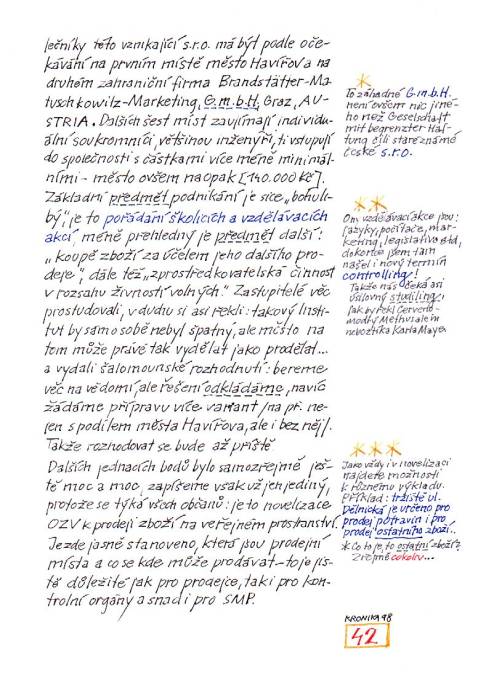 lečníky této vznikající s.r.o. má být podle oče-
kávání na prvním místě město Havířov a na
druhém zahraniční firma Brandstätter-Ma-
tuschkowitz-Marketing, G.m.b.H, Graz, AU-
STRIA. Dalších šest míst zaujímají individu-
ální soukromníci, většinou inženýři, ti vstupují
do společnosti s částkami více méně minimál-
ními - město ovšem naopak [140.000 Kč].
Základní předmět podnikání je sice „bohuli-
bý“, je to pořádání školicích a vzdělávacích
akcí, méně přehledný je předmět další:
„koupě zboží za účelem jeho dalšího pro-
deje“, dále též „zprostředkovatelská činnost
v rozsahu živností volných.“ Zastupitelé věc
prostudovali, v duchu si asi řekli: takový Insti-
tut by sám o sobě nebyl špatný, ale město na
tom může právě tak vydělat jako prodělat...
a vydali šalomounské rozhodnutí: bereme
věc na vědomí, ale řešení odkládáme, navíc
žádáme přípravu více variant /na př. ne-
jen s podílem města Havířova, ale i bez něj/.
Takže rozhodovat se bude až příště.
Dalších jednacích bodů bylo samozřejmě ješ-
tě moc a moc, zapíšeme však už jen jediný,
protože se týká všech občanů: je to novelizace
OZV k prodeji zboží na veřejném prostranství.
Je zde jasně stanoveno, která jsou prodejní
místa a co se kde může prodávat - to je jis-
tě důležité jak pro prodejce, tak i pro kon-
trolní orgány a snad i pro SMP.
*
To záhadné G.m.b.H.
není ovšem nic jiné-
ho než Geselschaft
mit begrenzter Haf-
tung čili staré známé
české s.r.o.
**
Om vzdělávací akce jsou:
jazyky, počítače, mar-
keting, legislativa atd,
dokonce jsem tam
našel i nový termín
controlling!
Takže nás čeká asi
úsilovný studiling,
jak by řekl Červeno-
modrý Methusalem
nebožtíka Karla Maye.
***
Jako vždy i v novelizaci
najdete možnosti
k různému výkladu.
Příklad: tržiště ul.
Dělnická je určeno pro
prodej potravin i pro
prodej ostatního zboží.
* Co to je, to ostatní zboží?
Zřejmě cokoliv...
KRONIKA 98
42